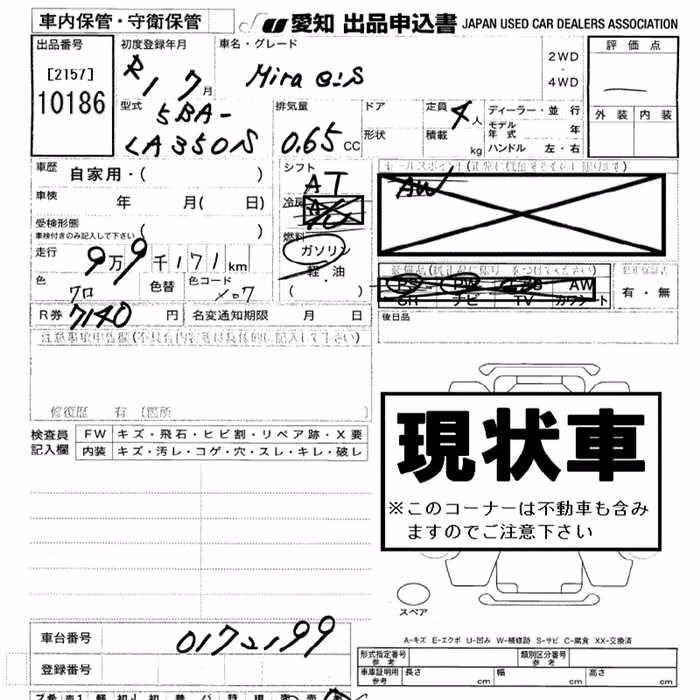 車内保管・守衛保管
JU 愛知 出品申込書 JAPAN USED CAR DEALERS ASSOCIATION
出品番号 初度登録年月 車名・グレード 2WD 評価点
[2157] R 1 7 月 Mira e:S ・
10186 4WD
型式 排気量 ドア 定員 4人 ディーラー・並行 外装 内装
5BA- モデル年式 年
LA350S 0.65 CC 形状 積載 kg ハンドル 左・右
車歴 自家用・( ) シフト
AT
車検 年 月( 日) 冷房 AW
受検形態 ( )
車検付きのみ記入して下さい
燃料
走行 9万9千171km ガソリン
軽油
色 色替 色コード ・
クロ X07 ( )
PS PW AW 有・無
SR ナビ TV カワシート
R券 7140 円 名変通知期限 月 日 後日品
修復歴 有 〔箇所 〕
検査員 FW キズ・飛石・ヒビ割・リペア跡・X要
記入欄 内装 キズ・汚レ・コゲ・穴・スレ・キレ・破レ
現状車
※このコーナーは不動車も含み
ますのでご注意下さい
スペア
A-キズ E-エクボ U-凹み W-補修跡 S-サビ C-腐食 XX-交換済
車台番号 0172199
登録番号
形式指定番号 参考 類別区分番号 参考
車庫証明用 参考 長さ cm 幅 cm 高さ cm